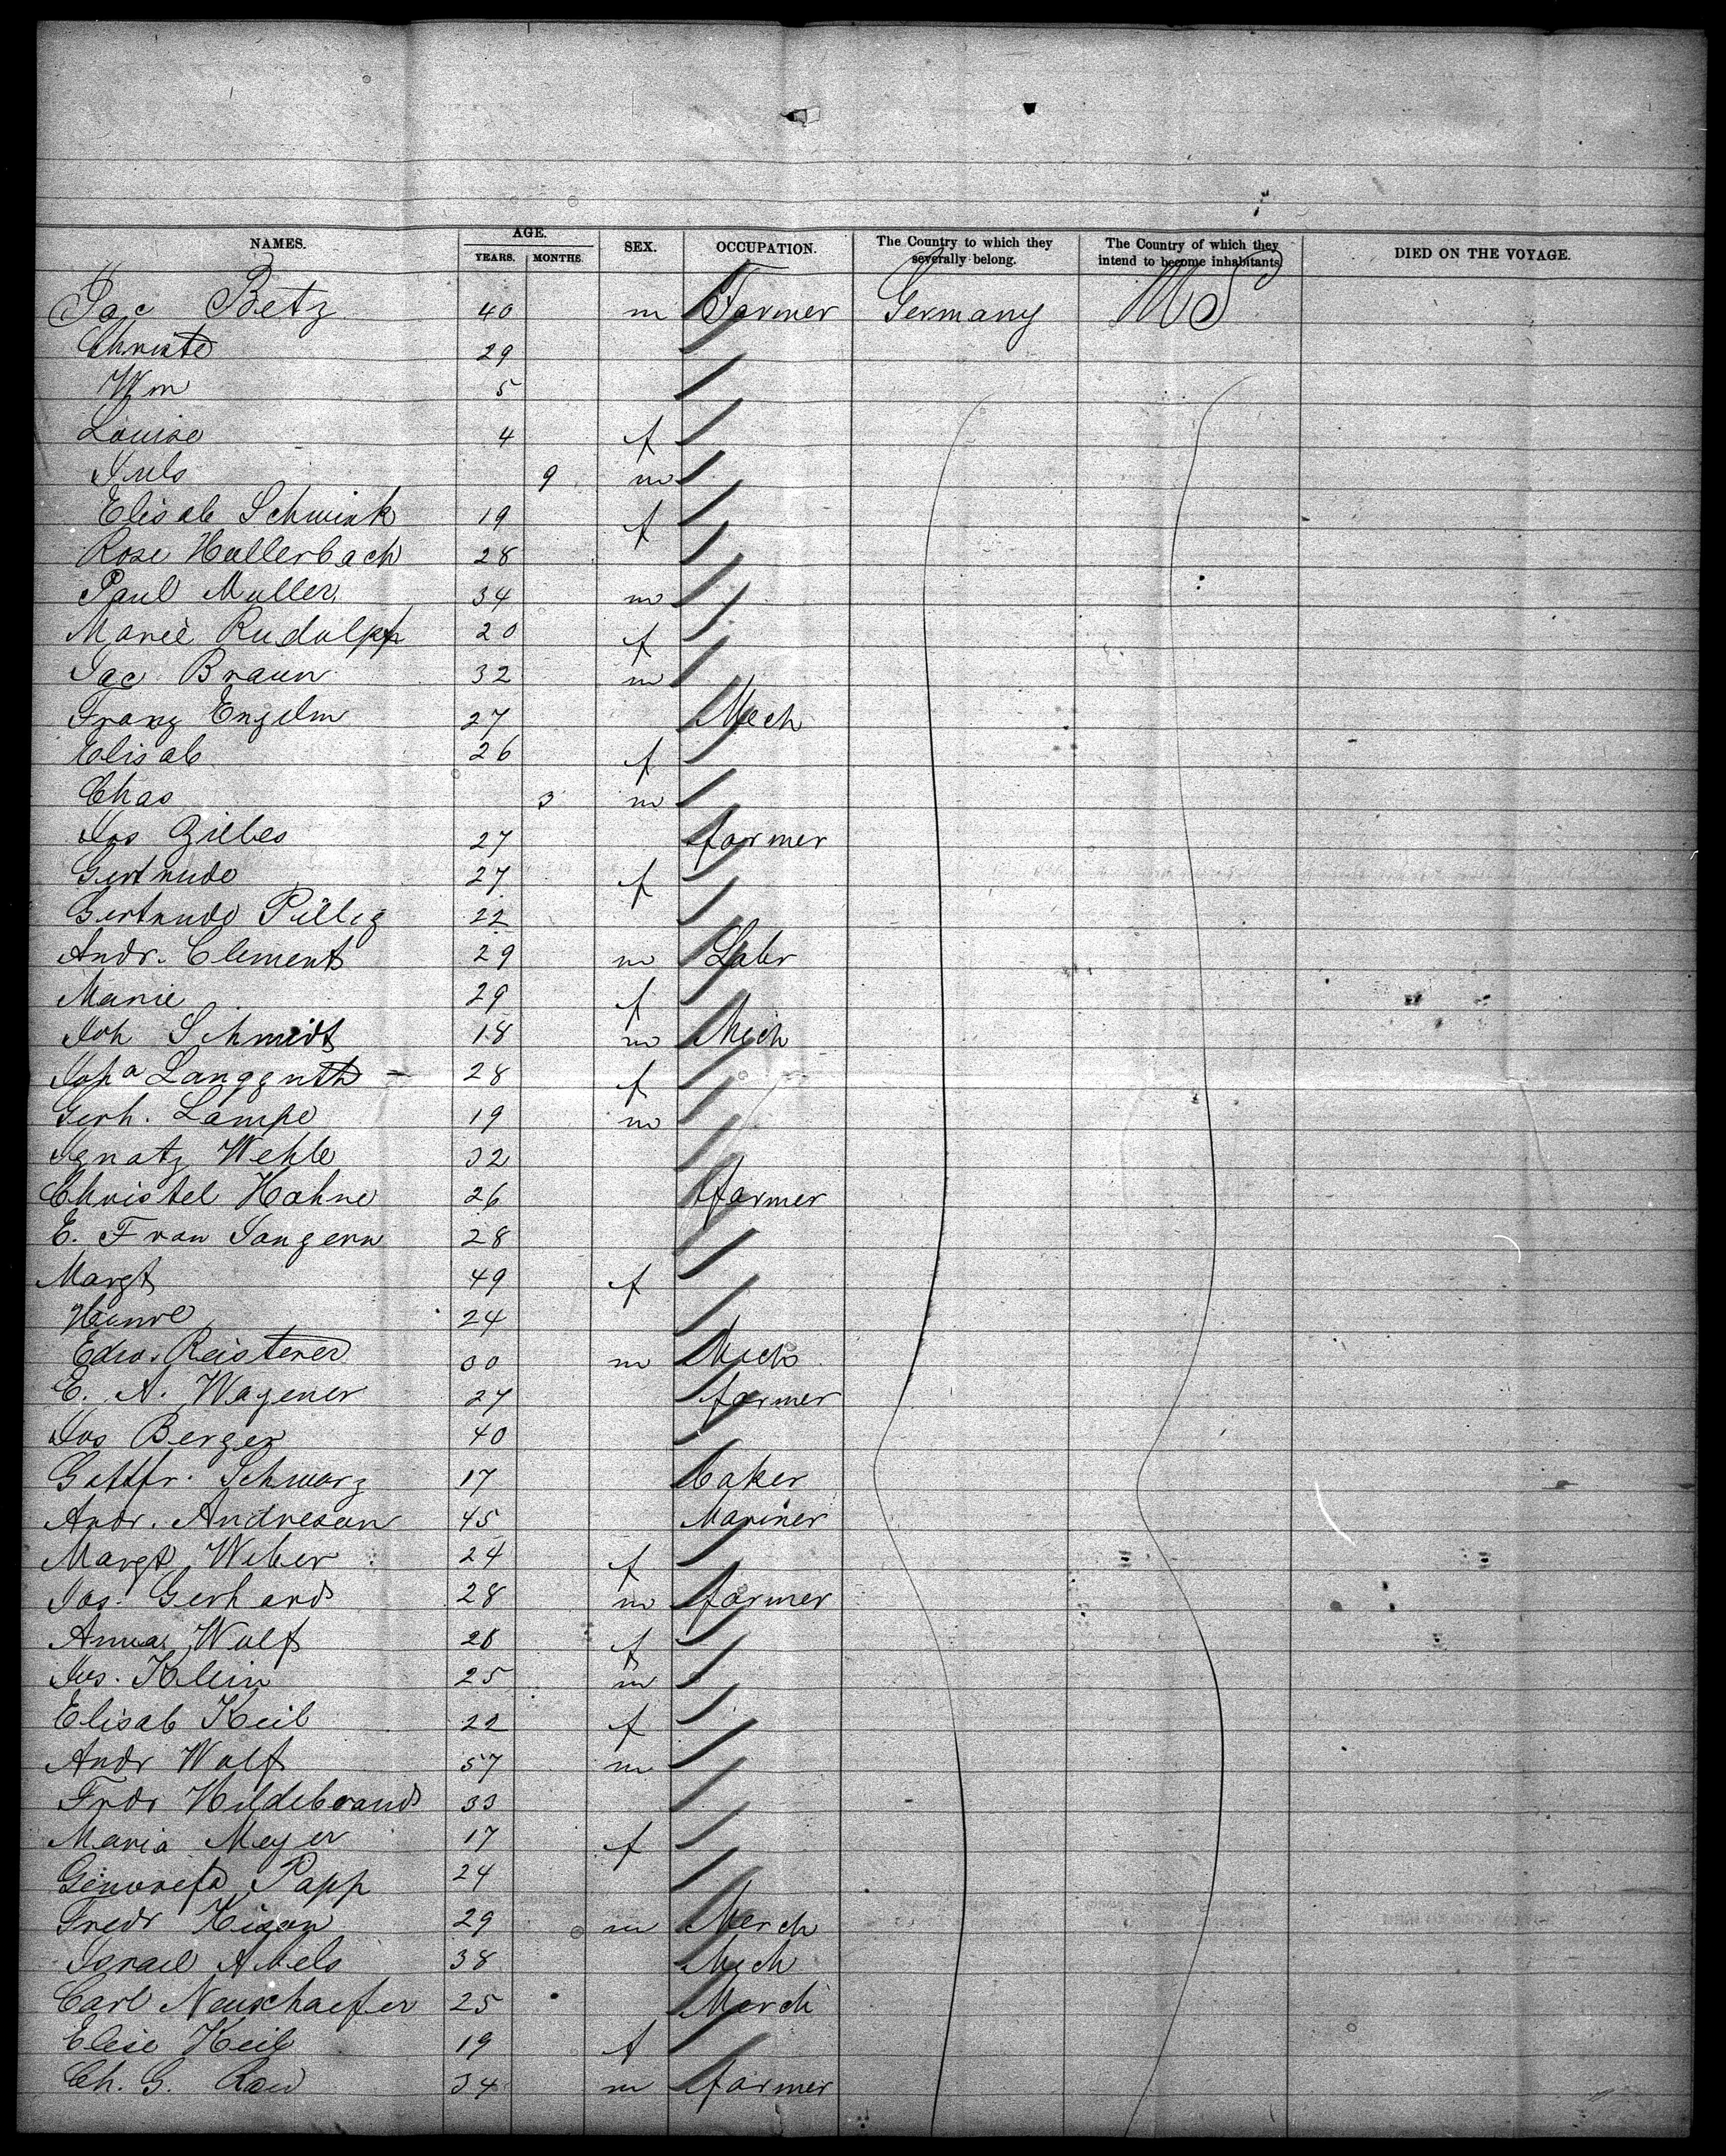 NAMES. AGE. SEX. OCCUPATION. The Country to which they severally belong. The Country of which they intend to become inhabitants. DIED ON THE VOYAGE.
YEARS. MONTHS.
Jac Betz 40 m Farmer Germany US
Christe 29
Wm 5
Louise 4 f
Juls 9 m
Elisab Schwink 19 f
Rose Hullerbach 28
Paul Muller 34 m
Marie Rudolph 20 f
Jac Braun 32 m
Franz Engelm 27 Mech
Elisab 26 f
Chas 3 m
Jos Zilles 27 farmer
Gertrude 27 f
Gertrude Pillig 22
Andr. Clement 29 m Labr
Marie 29 f
Joh Schmidt 18 m Mech
Jopa Langguth 28 f
Gerh. Lampe 19 m
Ignatz Wehle 32
Christel Hahne 26 farmer
E. Frau Sangern 28
Margt 49 f
24
Edw. Reisterer 30 m Mech
E. A. Wagener 27 farmer
Jos Berger 40
Gottfr. Schwarz 17 baker
Andr. Andresen 45 Mariner
Margt Weber 24 f
Jos. Gerhard 28 m farmer
Anna Wolf 28 f
Jos. Klein 25 m
Elisab Keil 22 f
Andr Wolf 57 m
Fredr Hildebrand 33
Maria Meyer 17 f
Genovefa Papp 24
Fredr 29 m Merch
Israel Abels 38 Mech
Carl Neuschaefer 25 Merch
Elise Keil 19 f
Ch. G. Rau 34 m farmer